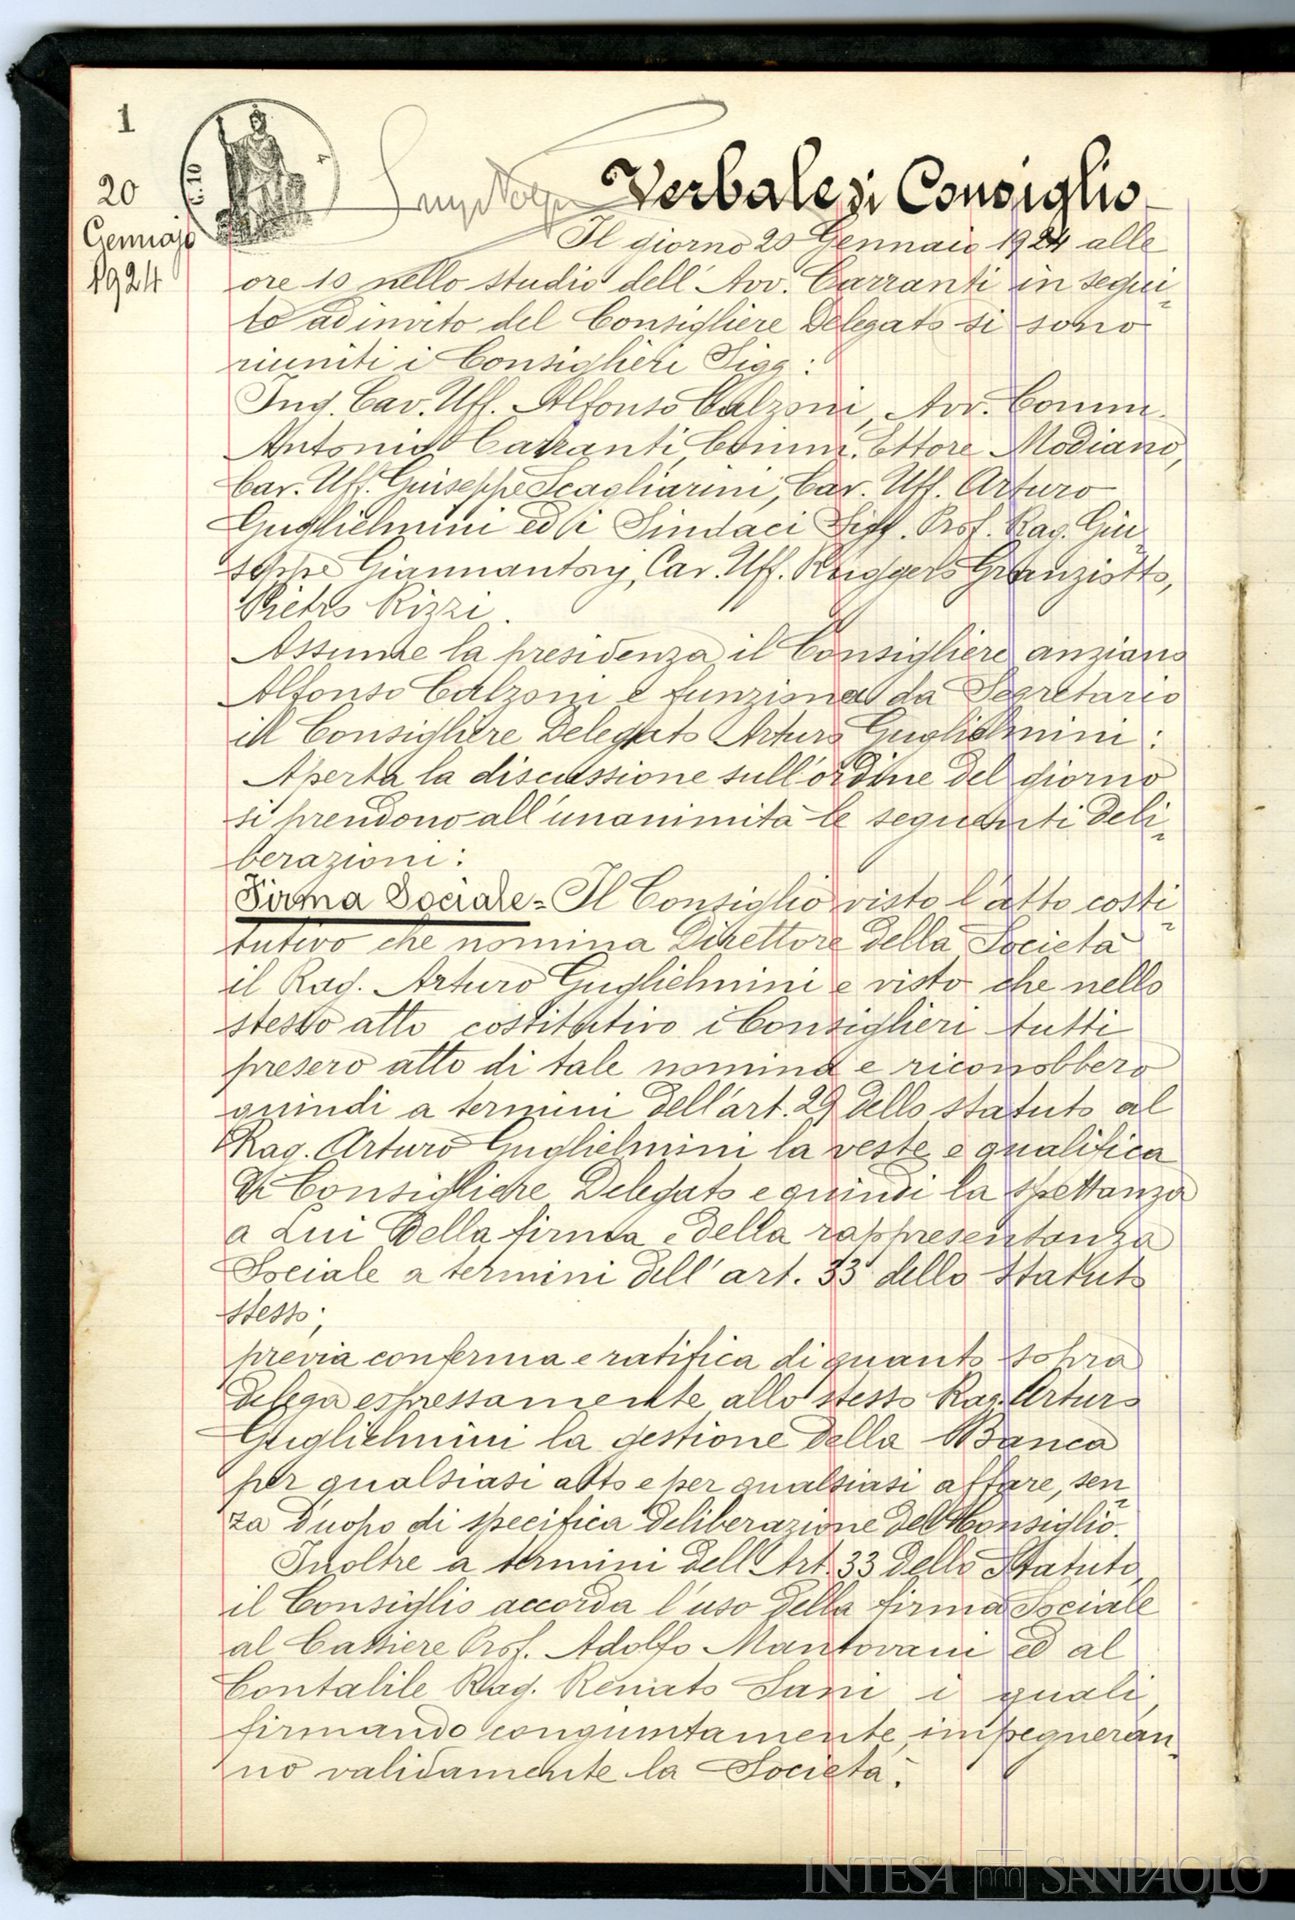 1
20
Gennajo
1924
C. 10
4
Verbale di Consiglio
Il giorno 20 Gennaio 1924 alle
ore 10 nello studio dell'Avv. Carranti in segui-
to ad invito del Consigliere Delegato si sono
riuniti i Consiglieri Sigg:
Ing. Cav. Uff. Alfonso Calzoni, Avv. Comm.
Antonio Carranti, Comm. Ettore Modiano,
Cav. Uff. Guiseppe Scagliarini, Cav. Uff. Arturo
Guglielmini ed i Sindaci Sigg. Prof. Rag. Giu-
seppe Giannantonj, Cav. Uff. Ruggero Granziotto,
Pietro Rizzi.
Assume la presidenza il Consigliere anziano
Alfonso Calzoni e funziona da Segretario
il Consigliere Delegato Arturo Guglielmini:
Aperta la discussione sull'ordine del giorno
si prendono all'unanimità le seguenti deli-
berazioni:
Firma Sociale = Il Consiglio visto l'atto costi-
tutivo che nomina Direttore della Società
il Rag. Arturo Guglielmini e visto che nello
stesso atto costitutivo i Consiglieri tutti
presero atto di tale nomina e riconobbero
quindi a termini dell'art. 29 dello statuto al
Rag. Arturo Guglielmini la veste e qualifica
di Consigliere Delegato e quindi la spettanza
a Lui della firma e della rappresentanza
Sociale a termini dell'art. 33 dello statuto
stesso;
previa conferma e ratifica di quanto sopra
delega espressamente allo stesso Rag. Arturo
Guglielmini la gestione della Banca
per qualsiasi atto e per qualsiasi affare, sen-
za d'uopo di specifica deliberazione del Consiglio.
Inoltre a termini dell'Art. 33 dello Statuto,
il Consiglio accorda l'uso della firma Sociale
al Cassiere Prof. Adolfo Mantovani ed al
Contabile Rag. Renato Sani i quali,
firmando congiuntamente, impegneran-
no validamente la Società.
INTESA SANPAOLO